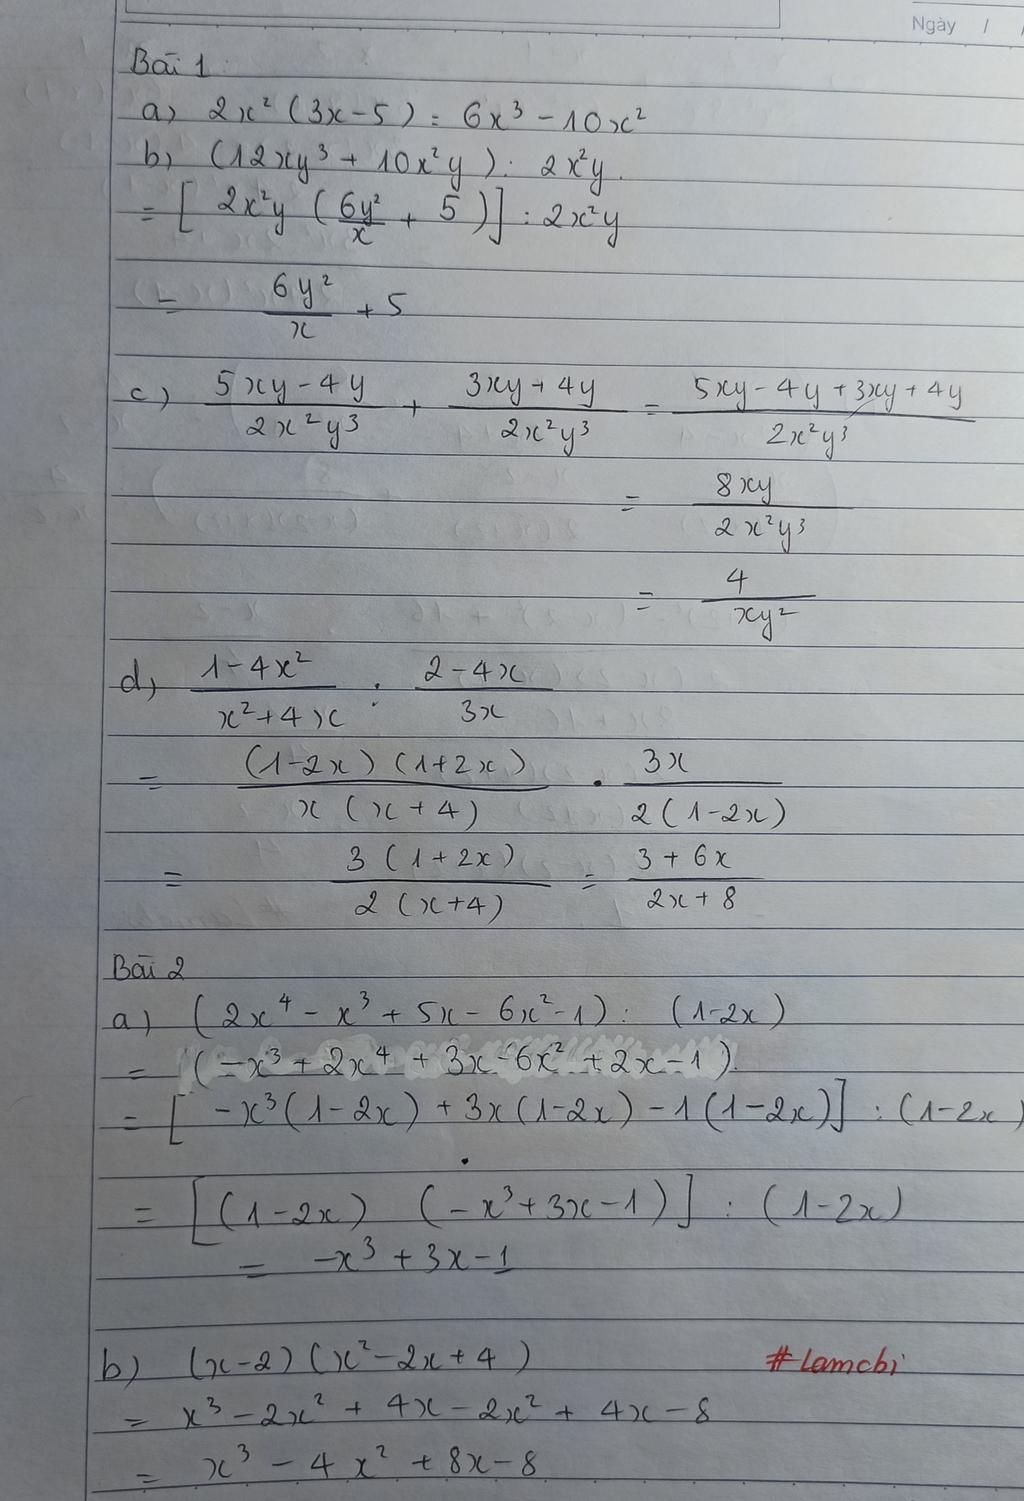 Ngày / /
Bài 1:
a) 2x² (3x - 5) = 6x³ - 10x²
b) (12xy³ + 10x²y) : 2x²y.
= [ 2x²y ( 6y²/x + 5 )] : 2x²y
= 6y²/x + 5
c) (5xy - 4y)/(2x²y³) + (3xy + 4y)/(2x²y³) = (5xy - 4y + 3xy + 4y)/(2x²y³)
= 8xy/(2x²y³)
= 4/(xy²)
d) (1 - 4x²)/(x² + 4x) : (2 - 4x)/(3x)
= ((1-2x) (1+2x))/(x (x + 4)) . 3x/(2 (1-2x))
= (3 (1 + 2x))/(2 (x+4)) = (3 + 6x)/(2x + 8)
Bài 2
a) (2x⁴ - x³ + 5x - 6x² - 1) : (1-2x)
= (-x³ + 2x⁴ + 3x - 6x² + 2x - 1)
= [ -x³ (1 - 2x) + 3x (1 - 2x) - 1 (1 - 2x)] : (1-2x)
= [(1 - 2x) (-x³ + 3x - 1)] : (1-2x)
= -x³ + 3x - 1
b) (x-2) (x² - 2x + 4)
#Lamcbi
= x³ - 2x² + 4x - 2x² + 4x - 8
= x³ - 4x² + 8x - 8